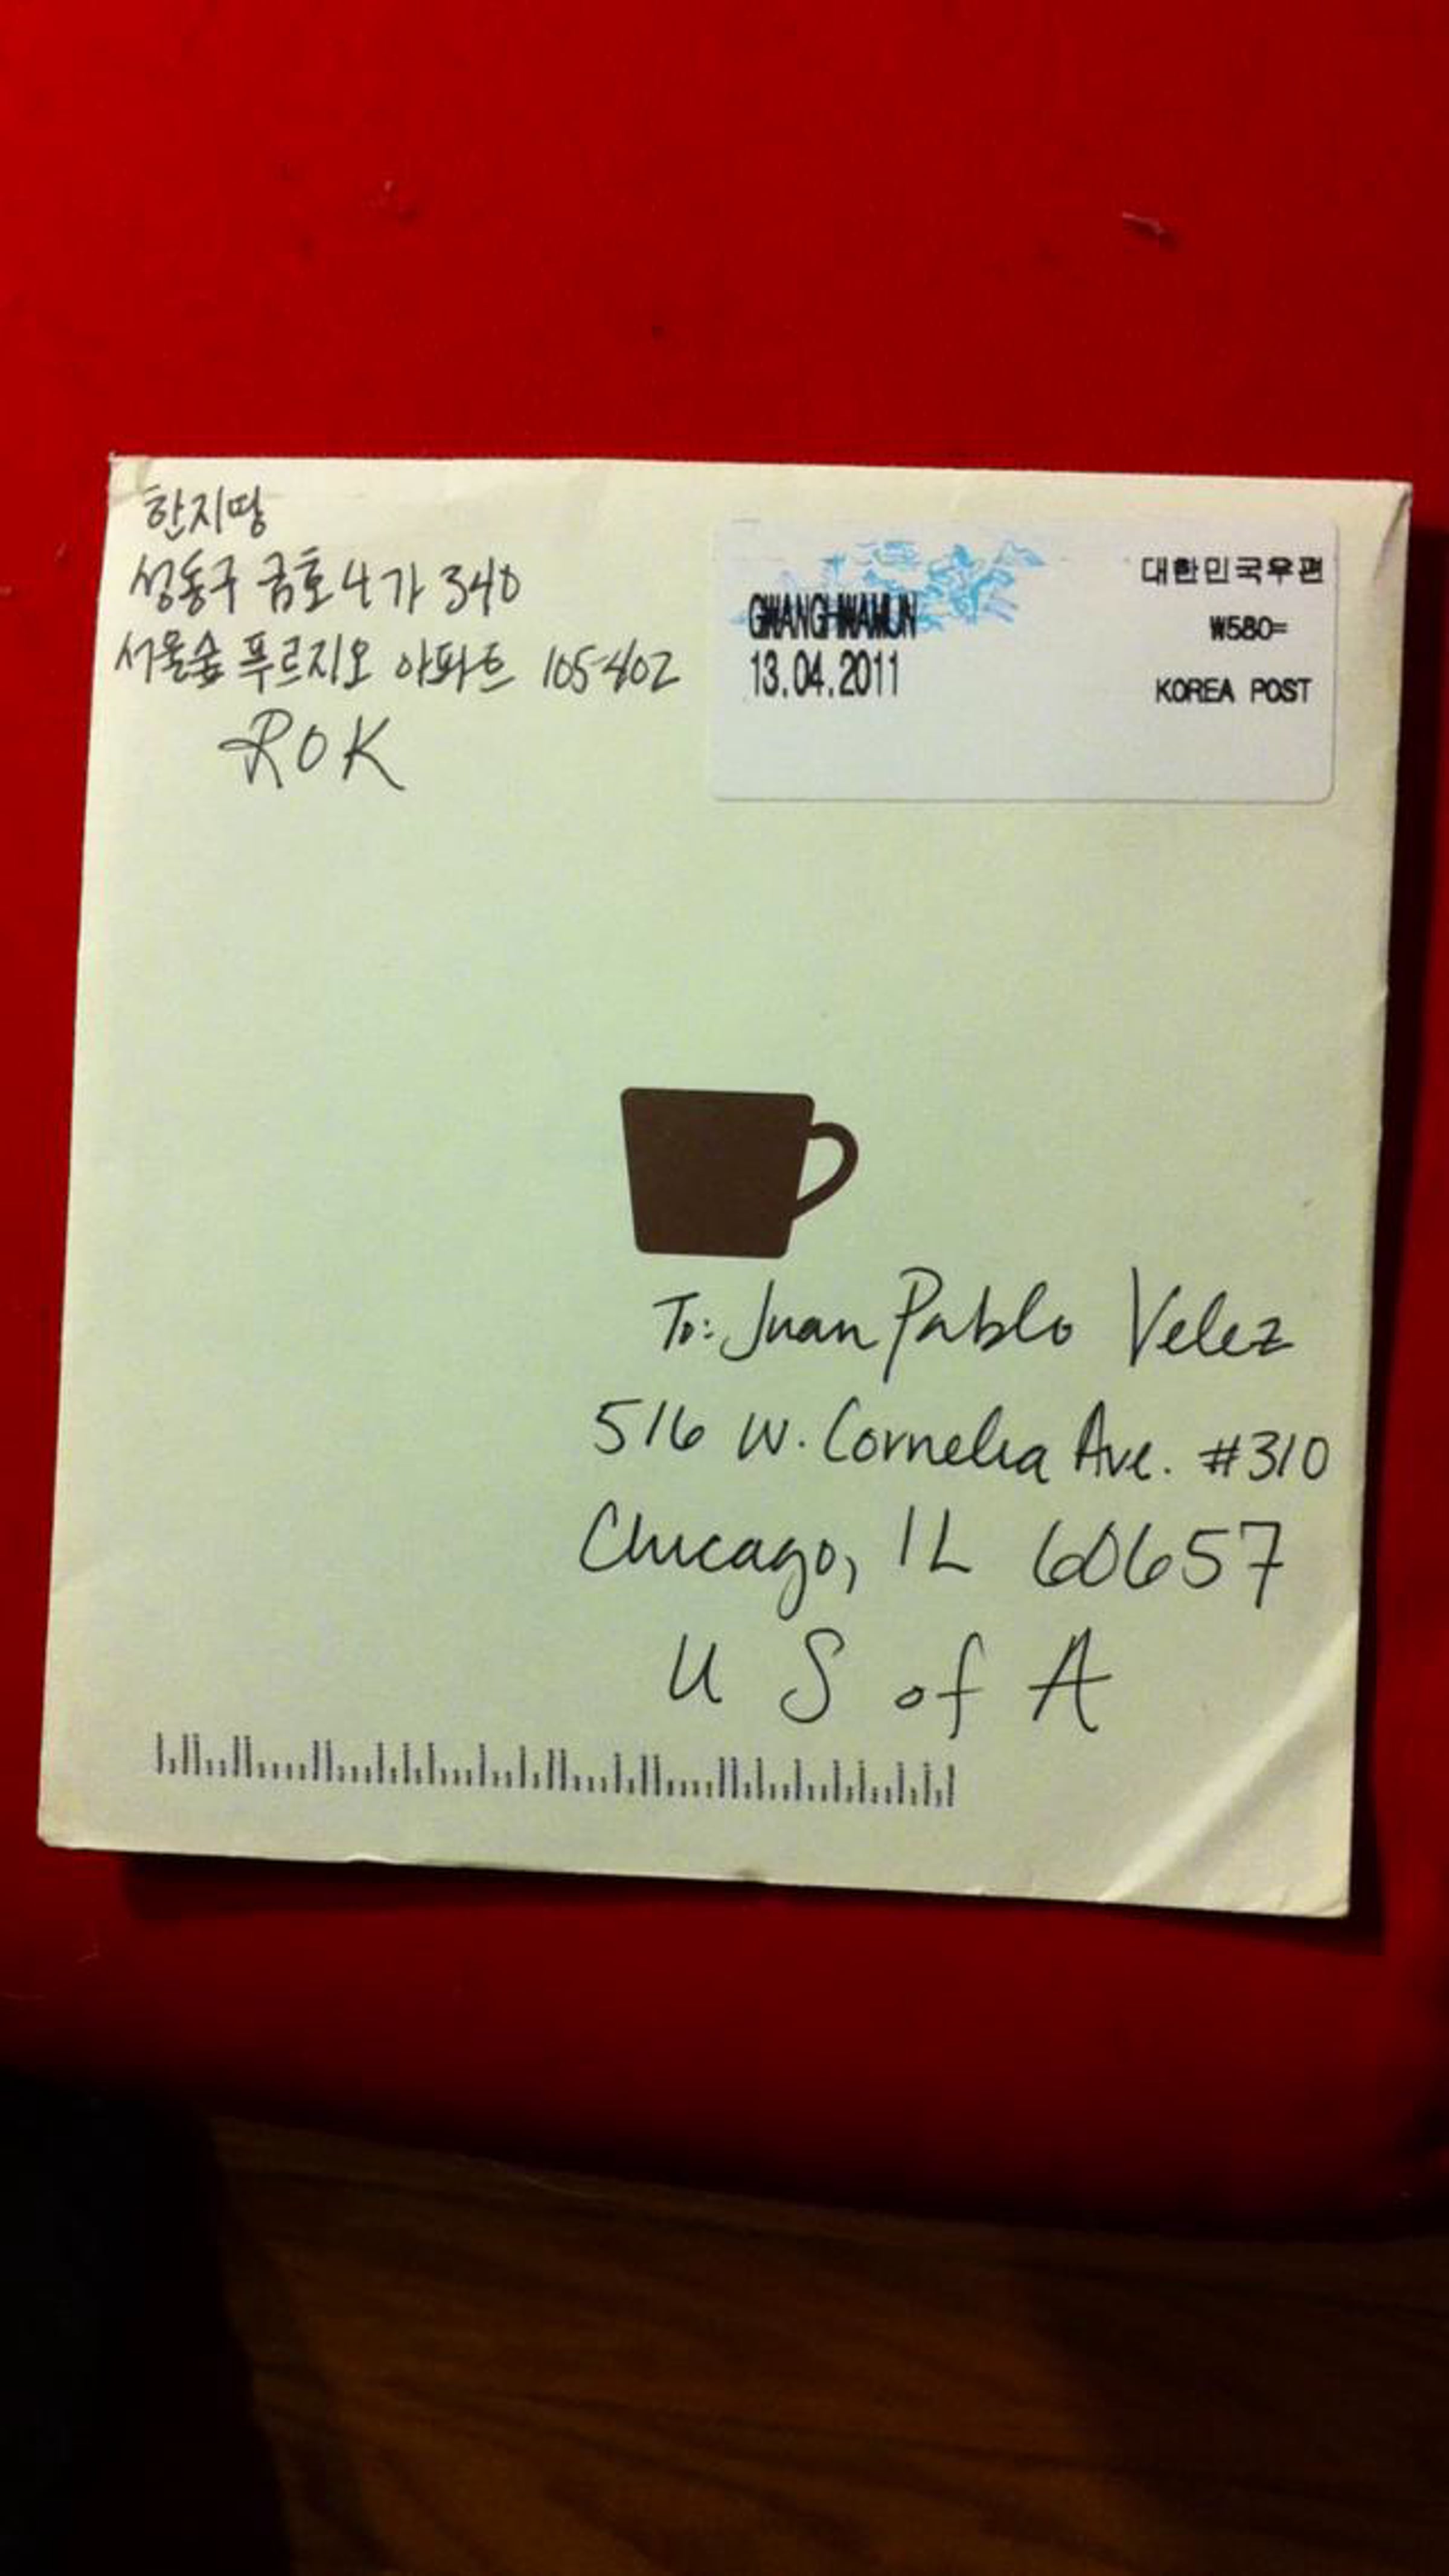 한지땅
성동구 금호4가 340
서울숲 푸르지오 아파트 105-402
ROK
GWANGHWAMUN
13.04.2011
대한민국우편
₩580=
KOREA POST
To: Juan Pablo Velez
516 W. Cornelia Ave. #310
Chicago, IL 60657
U S of A